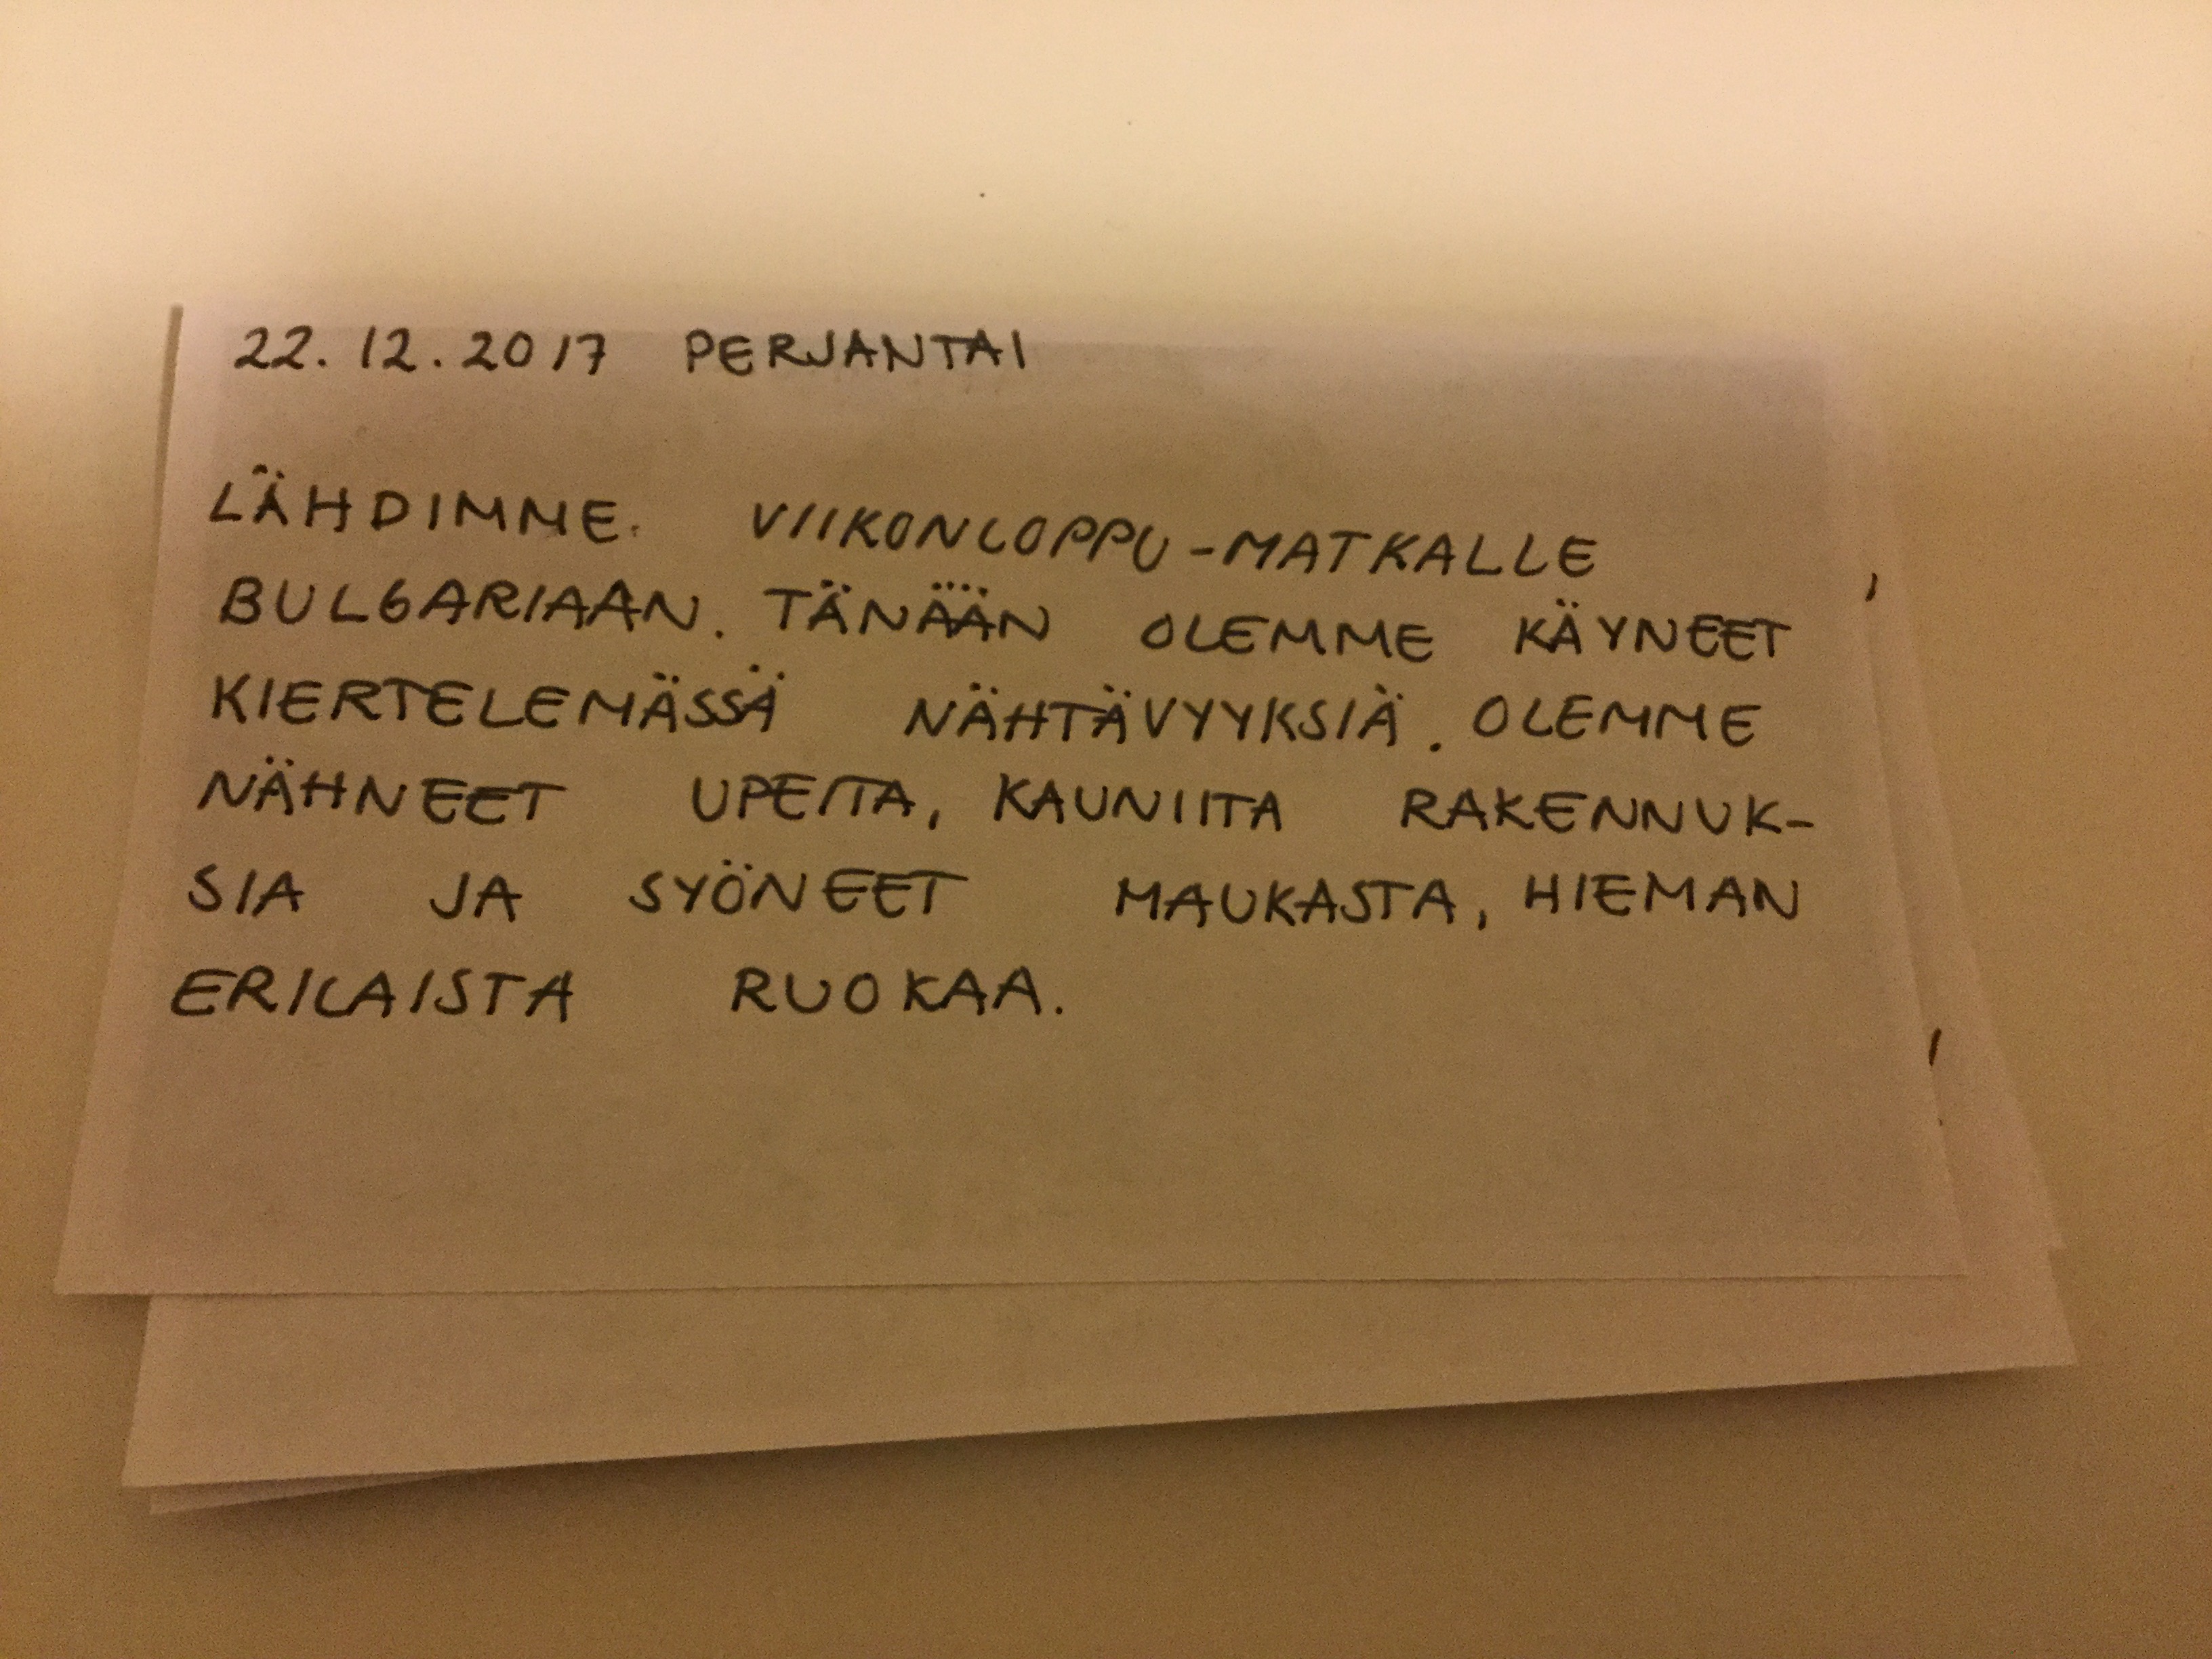 22.12.2017 PERJANTAI
LÄHDIMME. VIIKONLOPPU-MATKALLE
BULGARIAAN. TÄNÄÄN OLEMME KÄYNEET
KIERTELEMÄSSÄ NÄHTÄVYYKSIÄ. OLEMME
NÄHNEET UPEITA, KAUNIITA RAKENNUK-
SIA JA SYÖNEET MAUKASTA, HIEMAN
ERILAISTA RUOKAA.